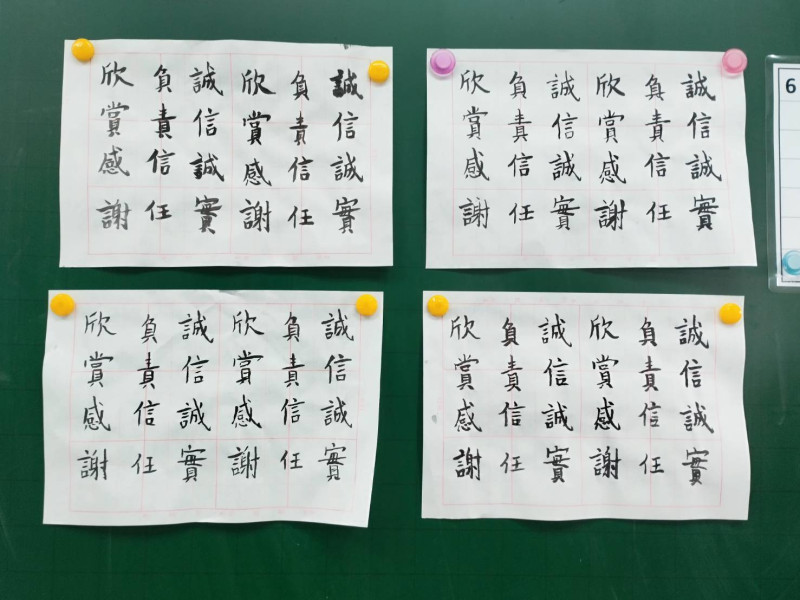 誠信誠實
負責信任
欣賞感謝
誠信誠實
負責信任
欣賞感謝
誠信誠實
負責信任
欣賞感謝
誠信誠實
負責信任
欣賞感謝
6
誠信誠實
負責信任
欣賞感謝
誠信誠實
負責信任
欣賞感謝
誠信誠實
負責信任
欣賞感謝
誠信誠實
負責信任
欣賞感謝